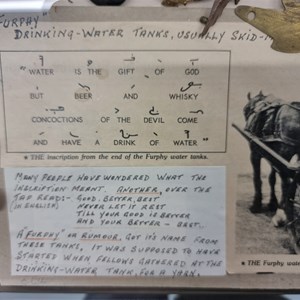 "FURPHY"
DRINKING-WATER TANKS, USUALLY SKID-
"WATER IS THE GIFT OF GOD
BUT BEER AND WHISKY
CONCOCTIONS OF THE DEVIL COME
AND HAVE A DRINK OF WATER"
• THE inscription from the end of the Furphy water tanks.
MANY PEOPLE HAVE WONDERED WHAT THE
INSCRIPTION MEANT. ANOTHER, OVER THE
TAP READ:- GOOD, BETTER, BEST
(IN ENGLISH) NEVER LET IT REST
TILL YOUR GOOD IS BETTER
AND YOUR BETTER - BEST.
A "FURPHY" OR RUMOUR, GOT IT'S NAME FROM
THESE TANKS, IT WAS SUPPOSED TO HAVE
STARTED WHEN FELLOWS GATHERED AT THE
DRINKING-WATER TANK, FOR A YARN.
• THE Furphy wate